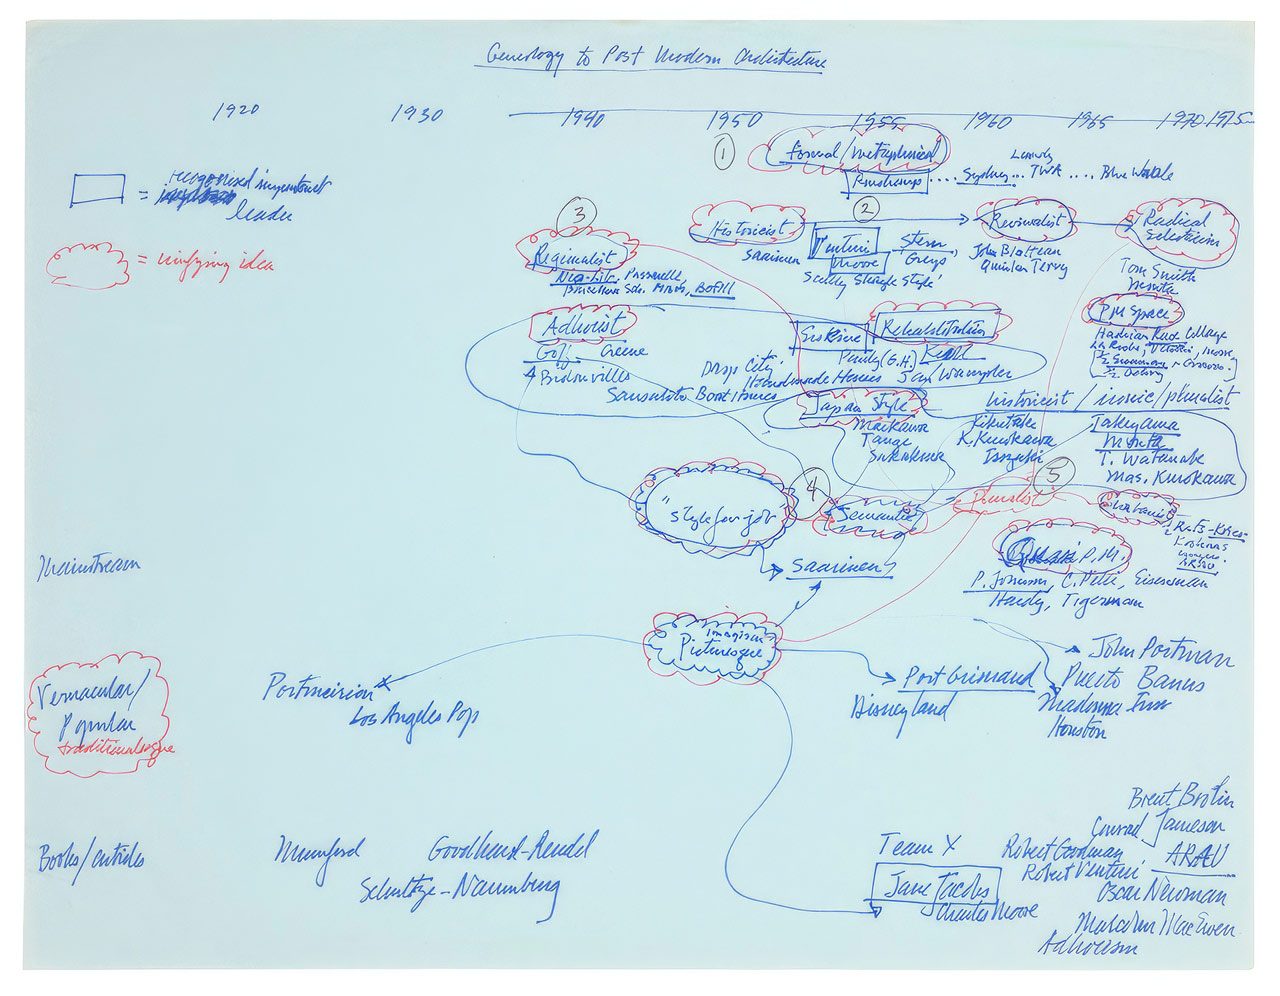 Geneology to Post Modern Architecture
1920 1930 1940 1950 1955 1960 1965 1970 1975
1
Formal / metaphorical
Ronchamp .... Sydney ... TWA .... Blue Whale
= recognised important
leader
= unifying idea
3
2
Historicist
Saarinen
Revivalist
Radical
Eclecticism
Regionalist
Neo-Lib. Passarelle,
Barcelona Sch. MBM, Bofill
Venturi
Moore
Stern
Greys
Scully Shingle Style'
John Blatteau
Quinlan Terry
Tom Smith
P.M. Space
Adhocist
Goff Greene
Bidonvilles
Erskine
Rehabilitation
Drop City
Handmade Houses Jan Wampler
Sausalito Boat Homes
historicist / ironic / pluralist
Japan Style
Maekawa
Tange
Sakakura
Kikutake
K. Kurokawa
Isozaki
Takeyama
T. Watanabe
Mas. Kurokawa
"style for job"
4
Semantic
Pluralist
5
Urbanist
ARAU
Quasi P.M.
P. Johnson, C. Pelli, Eisenman
Hardy, Tigerman
Mainstream
Saarinen
Picturesque
Vernacular/
Popular
Portmeirion
Los Angeles Pop
Port Grimaud
Disneyland
John Portman
Puerto Banus
Madonna Inn
Houston
Books/articles
Mumford
Goodhart-Rendel
Schultze-Naumburg
Team X
Jane Jacobs
Charles Moore
Brent Brolin
Conrad Jameson
Robert Goodman
ARAU
Robert Venturi
Oscar Newman
Malcolm MacEwen
Adhocism